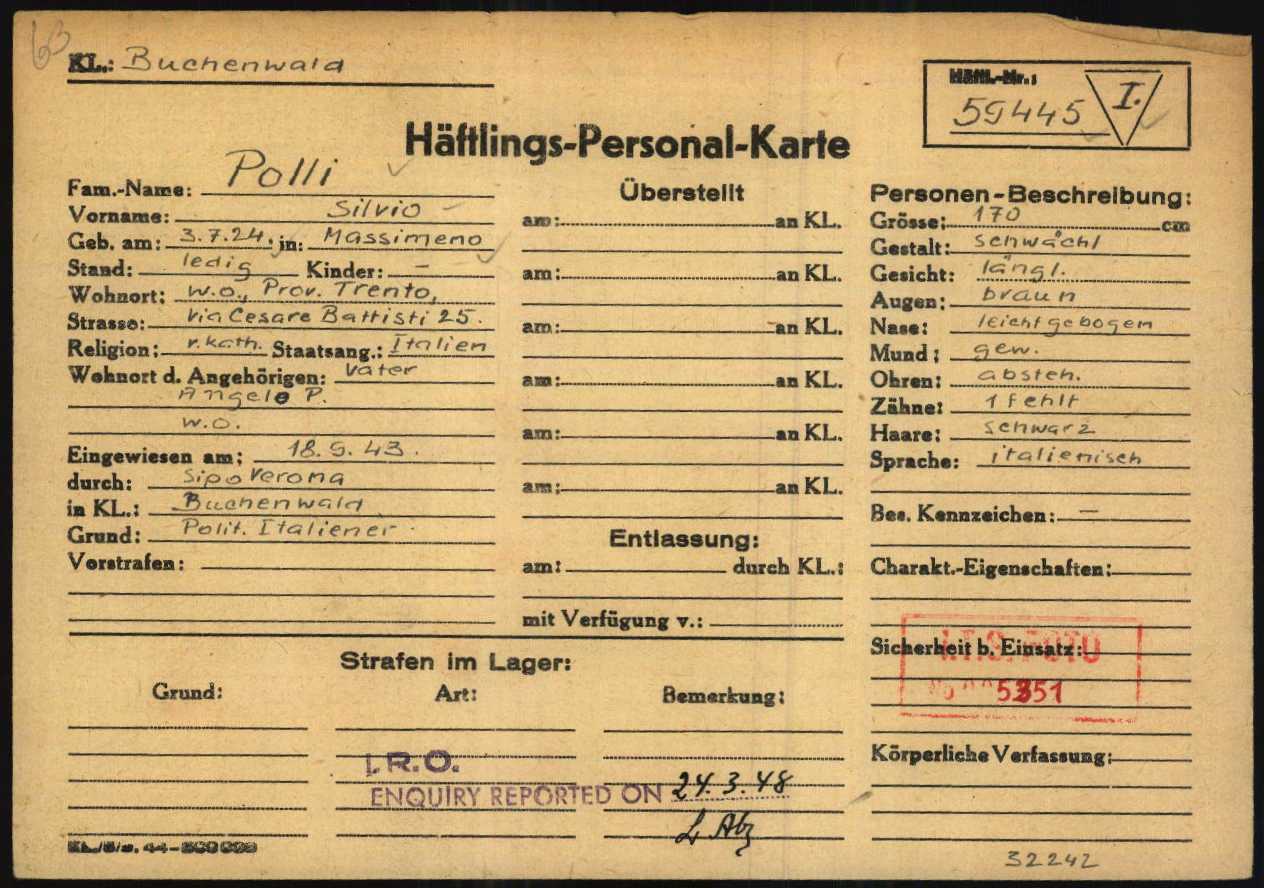 63
KL.: Buchenwald
Häftl.-Nr.:
59445 I.
Häftlings-Personal-Karte
Fam.-Name: Polli
Vorname: Silvio
Geb. am: 3.7.24. in: Massimeno
Stand: ledig Kinder: –
Wohnort: w.o., Prov. Trento,
Strasse: Via Cesare Battisti 25.
Religion: r.kath. Staatsang.: Italien
Wohnort d. Angehörigen: Vater
Angelo P.
w.o.
Eingewiesen am: 18.9.43.
durch: Sipo Verona
in KL.: Buchenwald
Grund: Polit. Italiener
Vorstrafen:
Überstellt
am: an KL.
am: an KL.
am: an KL.
am: an KL.
am: an KL.
am: an KL.
Entlassung:
am: durch KL.:
mit Verfügung v.:
Personen-Beschreibung:
Grösse: 170 cm
Gestalt: schwächl
Gesicht: längl.
Augen: braun
Nase: leicht gebogen
Mund: gew.
Ohren: absteh.
Zähne: 1 fehlt
Haare: schwarz
Sprache: italienisch
Bes. Kennzeichen: –
Charakt.-Eigenschaften:
Sicherheit b. Einsatz:
I.T.S. FOTO
No 5351
Körperliche Verfassung:
Strafen im Lager:
Grund: Art: Bemerkung:
I.R.O.
ENQUIRY REPORTED ON 24.3.48
32242